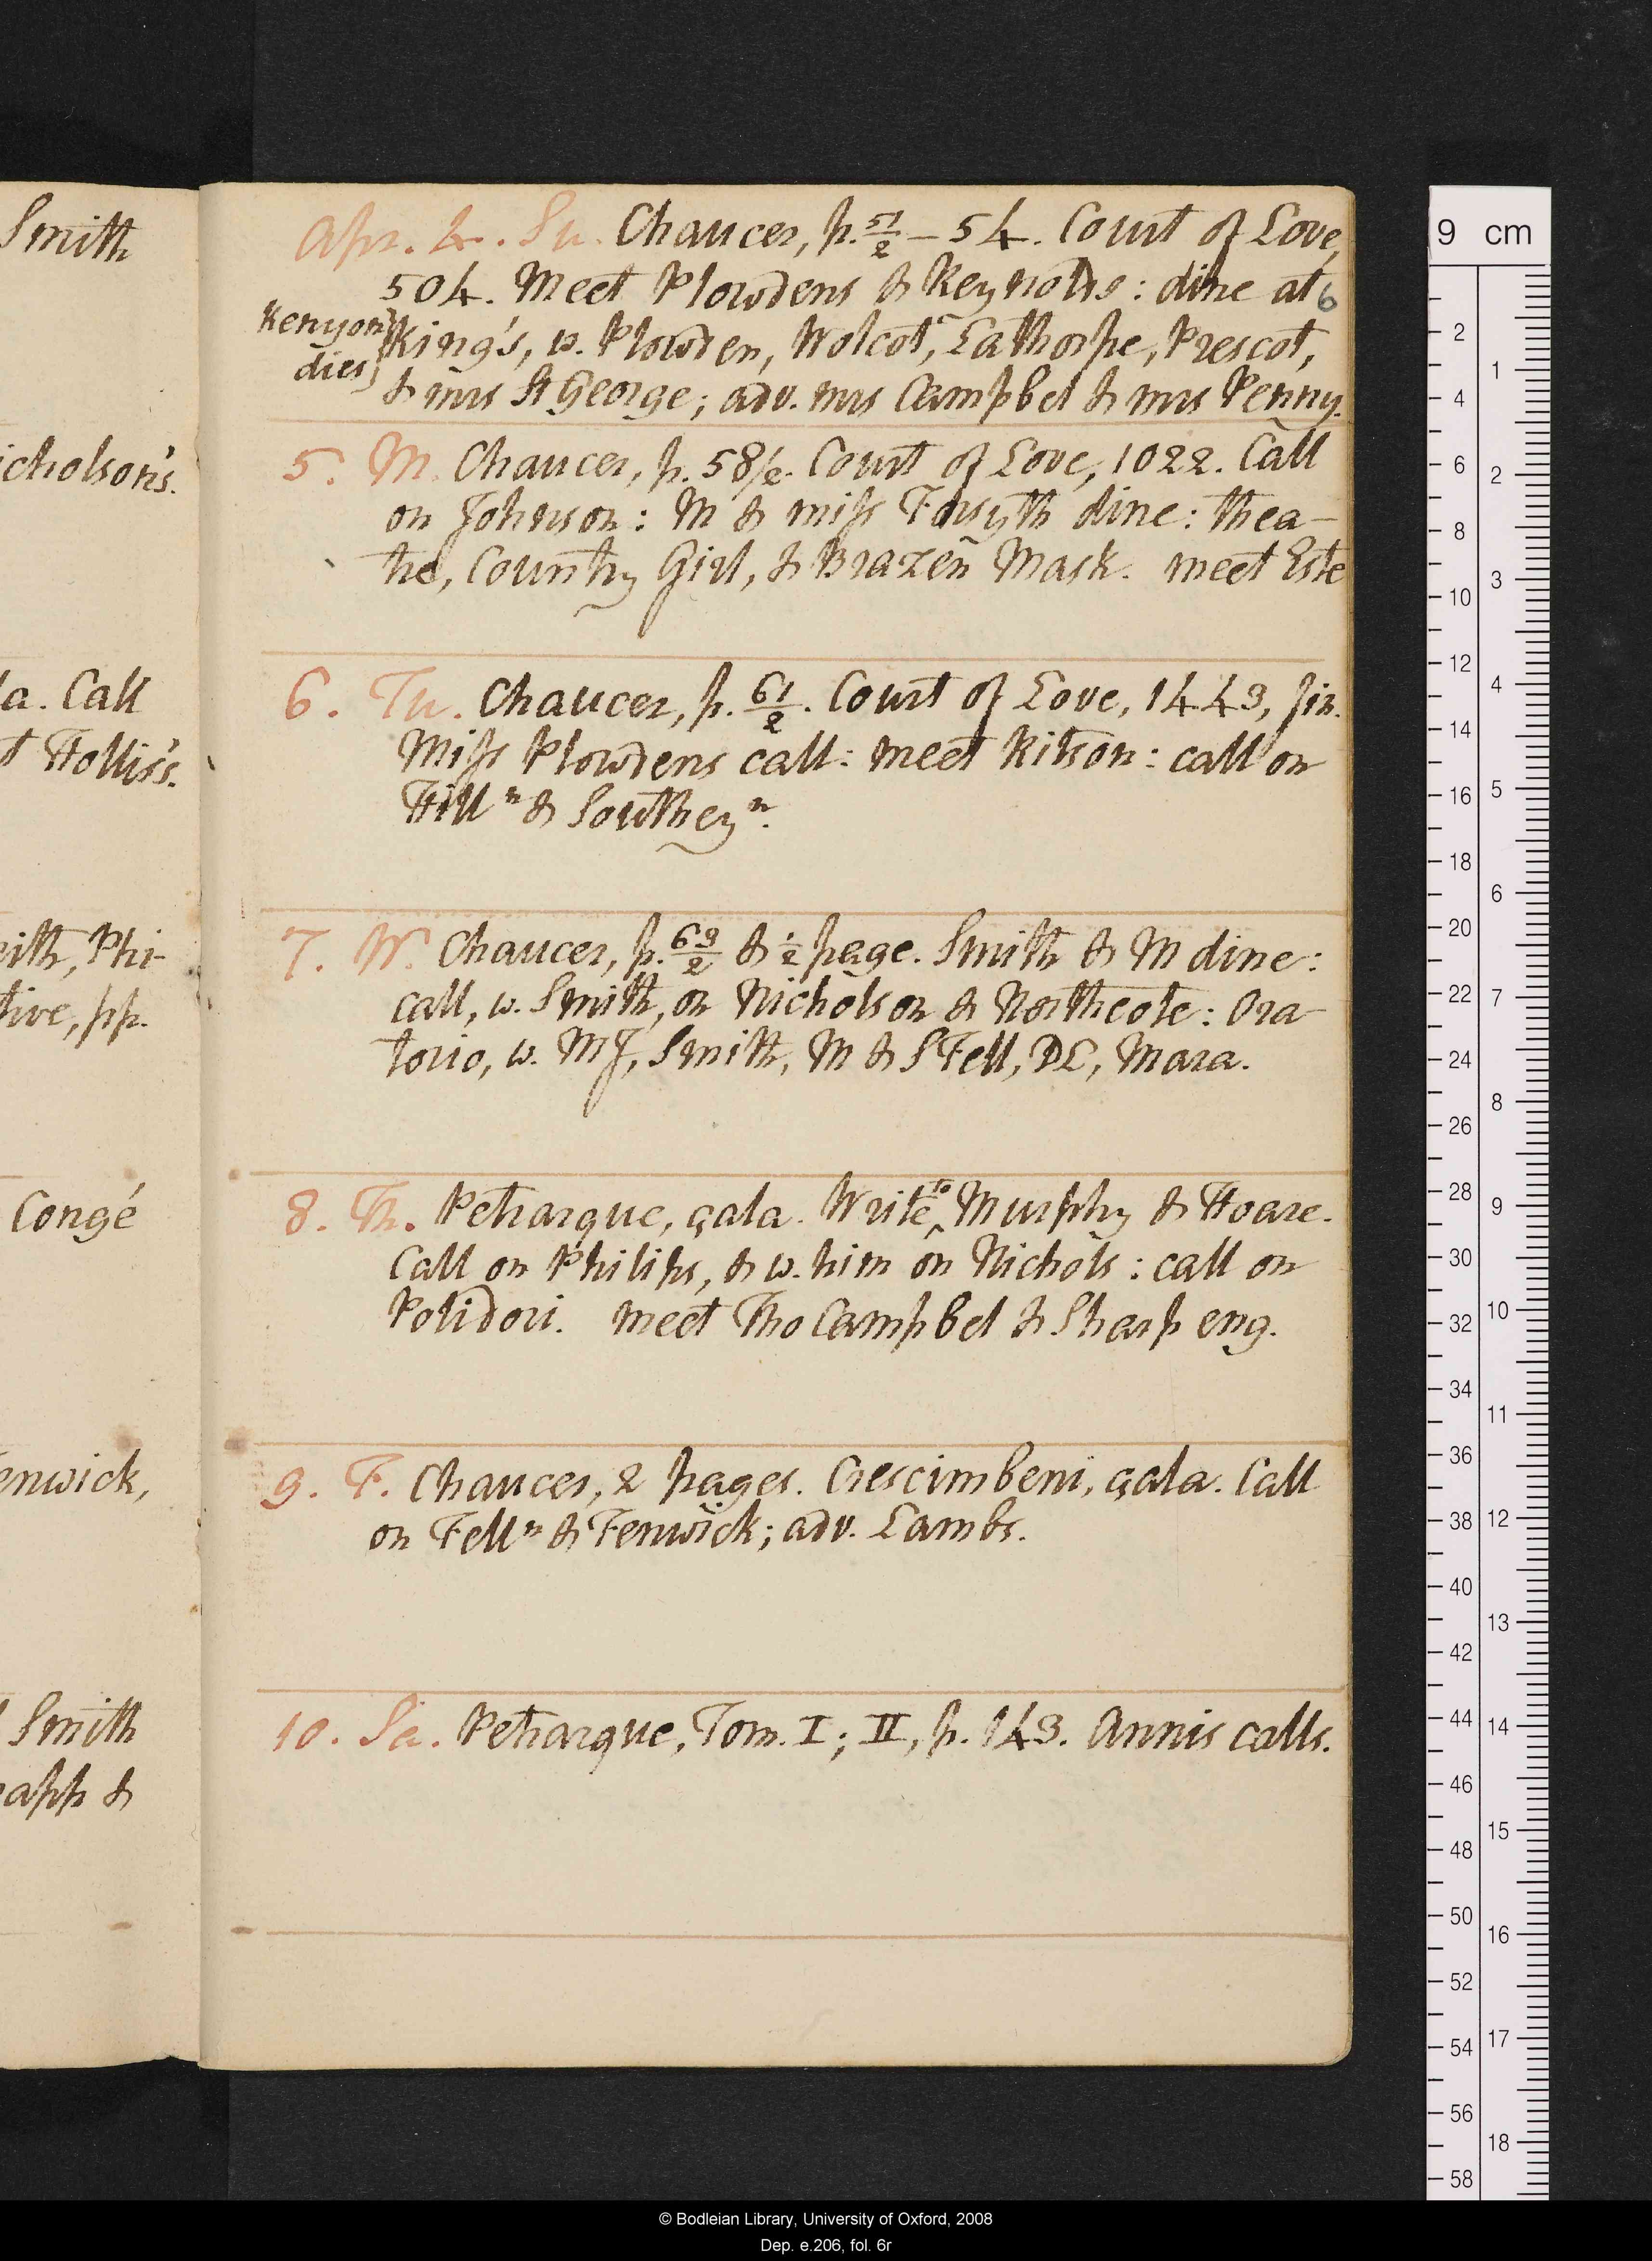 Smith
icholson's.
la. Call
t Hollis's.
ith, Phi-
tive, pp.
Congé
enwick,
Smith
app &
Apr. 4. Su. Chaucer, p. 51/2 – 54. Court of Love,
504. Meet Plowdens & Reynolds: dine at
6
Kenyon
dies
King's, w. Plowden, Wolcot, Lathorpe, Prescot,
& mrs St George; adv. mrs Campbel & mrs Penny.
5. M. Chaucer, p. 58/2. Court of Love, 1022. Call
on Johnson: M & miss Forsyth dine: thea-
tre, Country Girl, & Brazen Mask. meet Este
6. Tu. Chaucer, p. 61/2. Court of Love, 1443, fin.
Miss Plowdens call: meet Ritson: call on
Hill n & Southey n.
7. W. Chaucer, p. 69/2 & 1/2 page. Smith & M dine:
call, w. Smith, on Nicholson & Northcote: Ora-
torio, w. MJ, Smith, M & S Fell, DL, Mara.
8. Th. Petrarque, çala. Write to Murphy & Hoare.
Call on Philips, & w. him on Nichols: call on
Polidori. meet Tho Campbel & Sharp eng.
9. F. Chaucer, 2 pages. Crescimbeni, çala. Call
on Fell n & Fenwick; adv. Lambs.
10. Sa. Petrarque, Tom. I; II, p. 143. Annis calls.
9 cm
2
4
6
8
10
12
14
16
18
20
22
24
26
28
30
32
34
36
38
40
42
44
46
48
50
52
54
56
58
1
2
3
4
5
6
7
8
9
10
11
12
13
14
15
16
17
18
© Bodleian Library, University of Oxford, 2008
Dep. e.206, fol. 6r